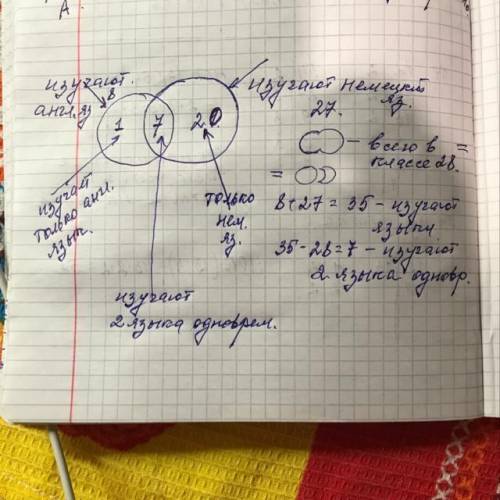 А.
изучают
8
англ. яз
1
7
20
изучают немецкий
яз.
27.
— всего в =
классе 28.
=
8 + 27 = 35 - изучают
языки
35 - 28 = 7 - изучают
2 языка одновр.
изучают
только англ.
язык.
только
нем.
яз.
изучают
2 языка одноврем.